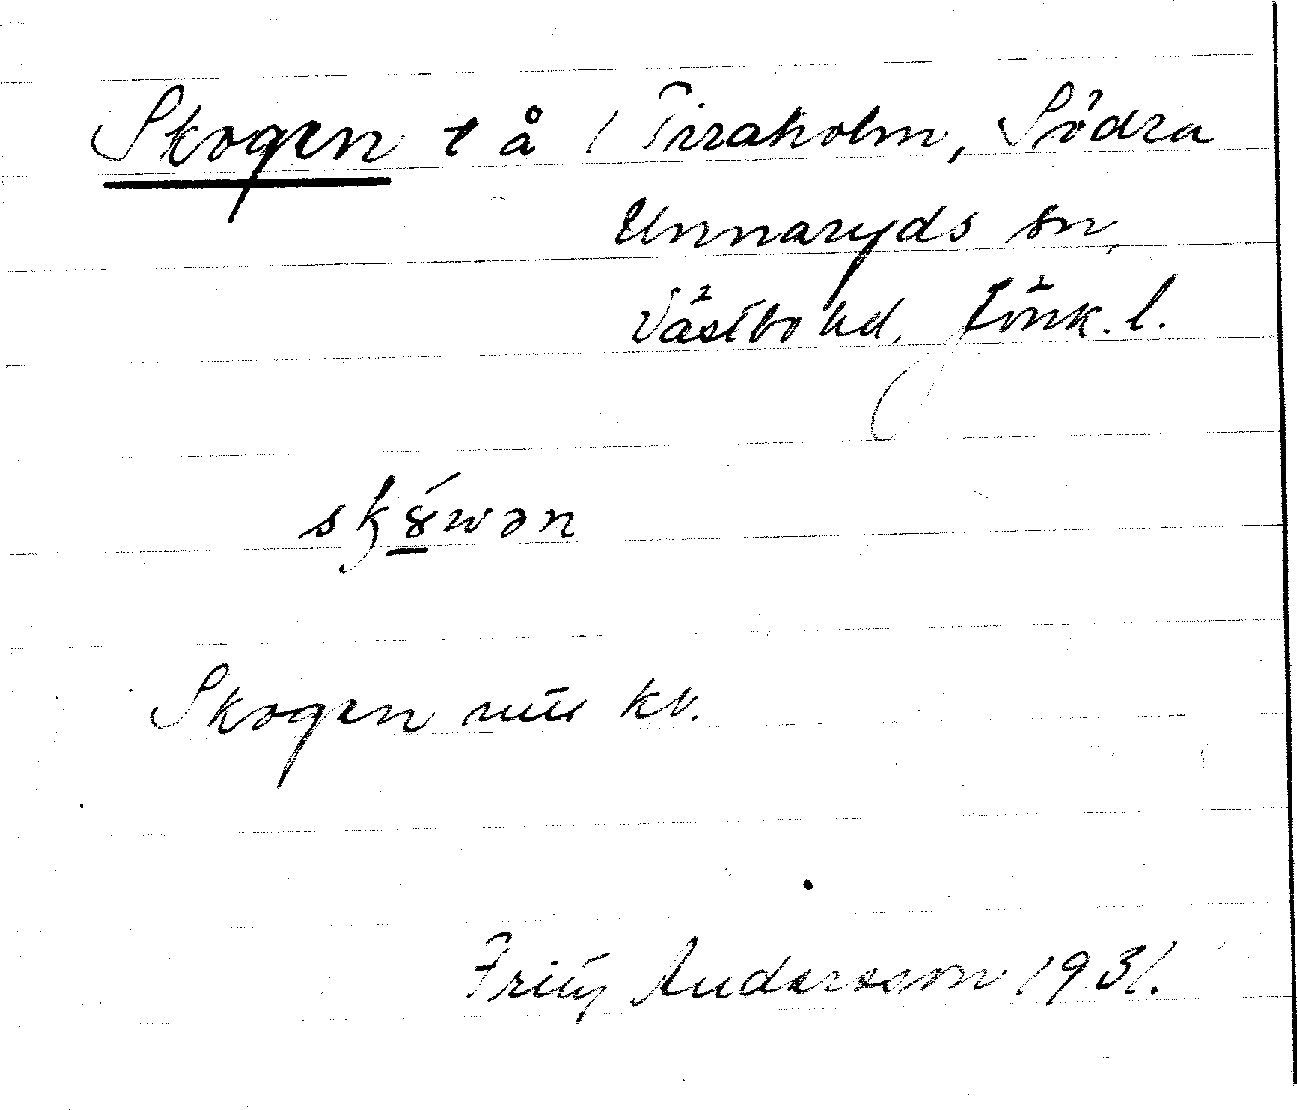 Skogen t å 1 Tiraholm, Södra
Unnaryds sn,
Västbo hd, Jönk. l.
skȣ́wən
Skogen utr kv.
Fritz Andersson 1931.